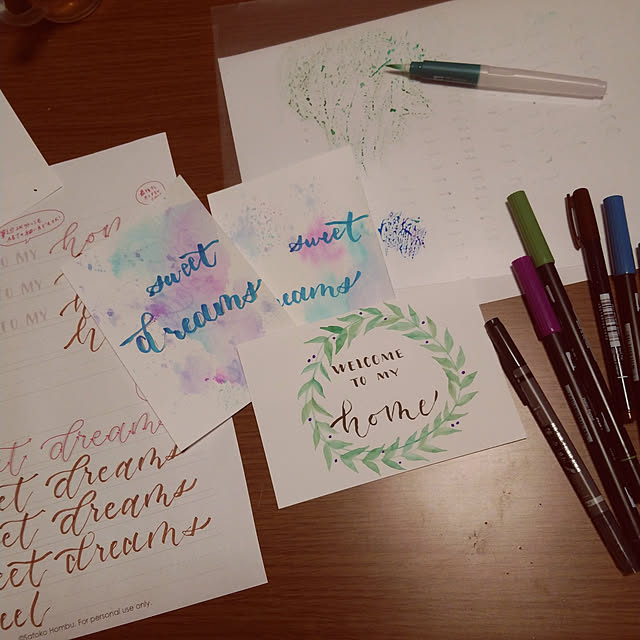 hom
TO MY
TO MY
h
TO MY
h
et dreams
et dreams
et dreams
eet dreams
eel
©Satoko Hombu. For personal use only.
sweet
dreams
sweet
eams
WELCOME
TO MY
home